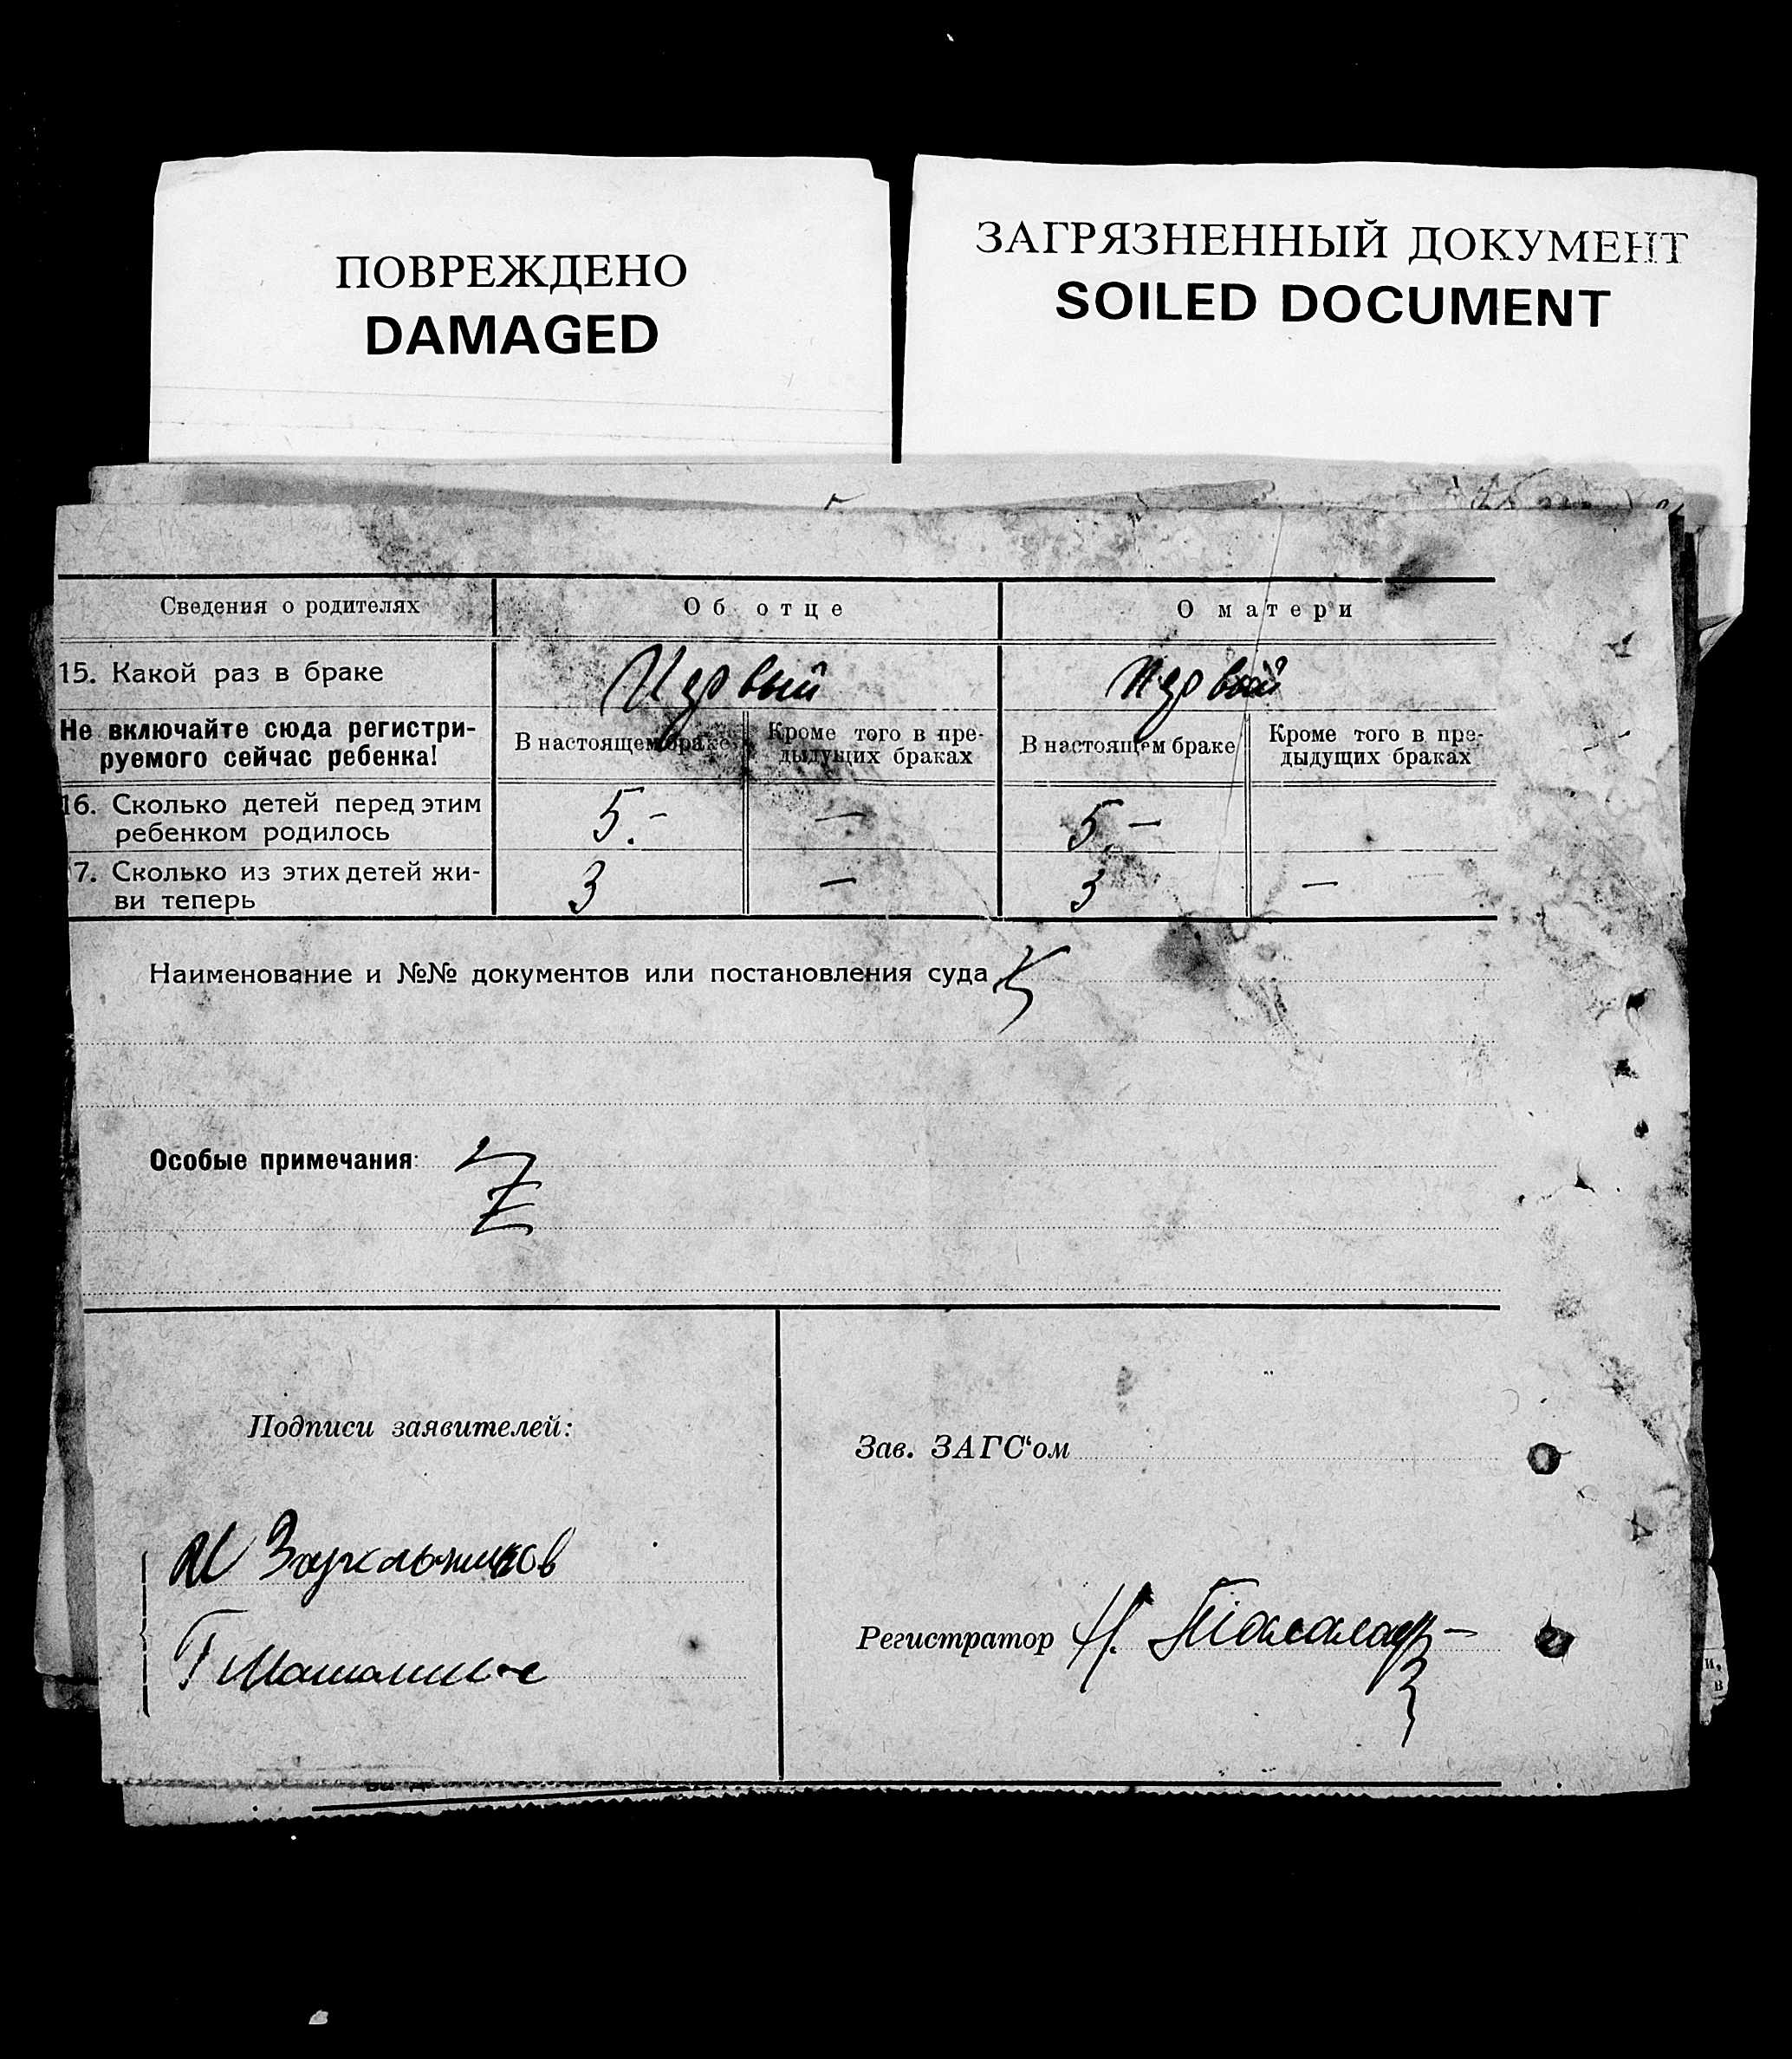 ПОВРЕЖДЕНО
DAMAGED
ЗАГРЯЗНЕННЫЙ ДОКУМЕНТ
SOILED DOCUMENT
Сведения о родителях
Об отце
О матери
15. Какой раз в браке
Первый
Первый
Не включайте сюда регистри-
руемого сейчас ребенка!
В настоящем браке
Кроме того в пре-
дыдущих браках
В настоящем браке
Кроме того в пре-
дыдущих браках
16. Сколько детей перед этим
ребенком родилось
5.-
—
5.—
7. Сколько из этих детей жи-
ви теперь
3
—
3
—
Наименование и №№ документов или постановления суда
Особые примечания:
Подписи заявителей:
Зав. ЗАГС‘ом
Регистратор